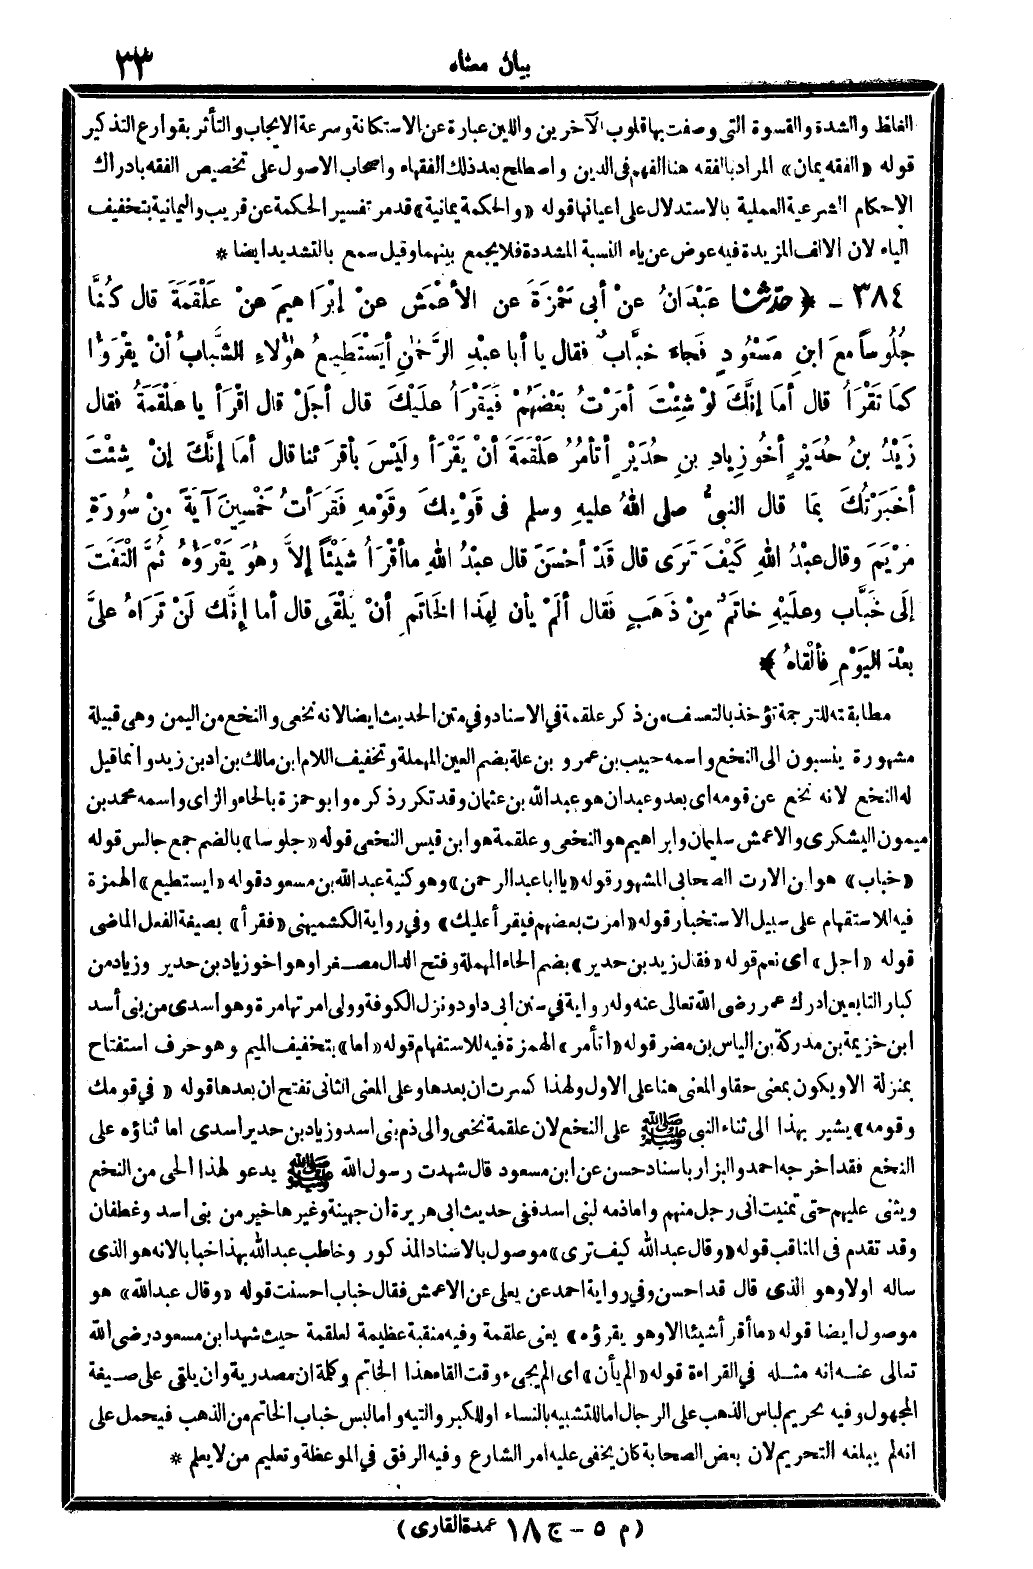 بيان معناه ٣٣
الغلظ والشدة والقسوة التى وصفت بها قلوب الآخرين واللين عبارة عن الاستكانة وسرعة الايجاب والتأثر بقوارع التذكير
قوله «الفقه يمان» المراد بالفقه هنا الفهم فى الدين واصطلح بعد ذلك الفقهاء واصحاب الاصول على تخصيص الفقه بادراك
الاحكام الشرعية العملية بالاستدلال على اعيانها قوله «والحكمة يمانية» قد مر تفسير الحكمة عن قريب واليمانية بتخفيف
الياء لان الالف المزيدة فيه عوض عن ياء النسبة المشددة فلا يجمع بينهما وقيل سمع بالتشديد ايضا *
٣٨٤ - ﴿ حَدَّثَنَا عَبْدَانُ عنْ أبى حَمْزَةَ عن الأعْمَشِ عنْ إبْرَاهِيمَ عنْ عَلْقَمَةَ قال كُنَّا
جُلُوساً معَ ابنِ مَسْعُودٍ فَجاءَ خبَّابٌ فقال يا أبا عبْدِ الرَّحْمٰنِ أيَسْتَطِيعُ هٰؤلاءِ الشَّبابُ أنْ يقْرَؤا
كمَا تَقْرَأُ قال أما إنَّكَ لوْ شِئْتَ أمَرْتُ بَعْضَهُمْ فَيَقْرَأُ علَيْكَ قال أجَلْ قال اقْرَأ يا علْقَمَةُ فقال
زَيْدُ بنُ حُدَيْرٍ أخُو زِيادِ بنِ حُدَيْرٍ أتأمُرُ عَلْقَمَةَ أنْ يَقْرَأ ولَيْسَ بأقْرَئنا قال أما إنَّكَ إنْ شِئْتَ
أخبَرْتُكَ بمَا قال النبىُّ صلى اللهُ عليهِ وسلم فى قَوْمِكَ وقَوْمِهِ فقَرَأتُ خَمْسِينَ آيَةً مِنْ سُورَةِ
مَرْيَمَ وقال عبْدُ اللهِ كَيْفَ تَرَى قال قَدْ أحْسَنَ قال عبْدُ اللهِ ما أقْرَأُ شَيْئاً إلاَّ وهُوَ يَقْرَؤُهُ ثُمَّ الْتَفَتَ
إلَى خَبَّابٍ وعلَيْهِ خاتَمٌ مِنْ ذَهَبٍ فقال ألَمْ يأنِ لِهٰذَا الخَاتَمِ أنْ يُلْقَى قال أما إنَّكَ لَنْ تَرَاهُ علىَّ
بعْدَ اليَوْمِ فألْقاهُ ﴾ *
مطابقته للترجمة تؤخذ بالتعسف من ذكر علقمة في الاسناد وفي متن الحديث ايضا لانه نخعى والنخع من اليمن وهى قبيلة
مشهورة ينسبون الى النخع واسمه حبيب بن عمرو بن علة بضم العين المهملة وتخفيف اللام ابن مالك بن ادبن زيد وانما قيل
له النخع لانه نخع عن قومه اى بعد وعبدان هو عبد الله بن عثمان وقد تكرر ذكره وابو حمزة بالحاء والزاى واسمه محمد بن
ميمون اليشكرى والاعمش سليمان وابراهيم هو النخعى وعلقمة هو ابن قيس النخعى قوله «جلوسا» بالضم جمع جالس قوله
«خباب» هو ابن الارت الصحابى المشهور قوله «يا ابا عبد الرحمن» وهو كنية عبد الله بن مسعود قوله «ايستطيع» الهمزة
فيه للاستفهام على سبيل الاستخبار قوله «امرت بعضهم فيقرأ عليك» وفي رواية الكشميهنى «فقرأ» بصيغة الفعل الماضى
قوله «اجل» اى نعم قوله «فقال زيد بن حدير» بضم الحاء المهملة وفتح الدال مصغرا وهو اخو زياد بن حدير وزياد من
كبار التابعين ادرك عمر رضى الله تعالى عنه وله رواية في سنن ابى داود ونزل الكوفة وولى امرتها مرة وهو اسدى من بنى أسد
ابن خزيمة بن مدركة بن الياس بن مضر قوله «اتأمر» الهمزة فيه للاستفهام قوله «اما» بتخفيف الميم وهو حرف استفتاح
بمنزلة الا ويكون بمعنى حقا والمعنى هنا على الاول ولهذا كسرت ان بعدها وعلى المعنى الثانى تفتح ان بعدها قوله «في قومك
وقومه» يشير بهذا الى ثناء النبى ﷺ على النخع لان علقمة نخعى والى ذم بنى اسد وزياد بن حدير اسدى اما ثناؤه على
النخع فقد اخرجه احمد والبزار باسناد حسن عن ابن مسعود قال شهدت رسول الله ﷺ يدعو لهذا الحى من النخع
ويثنى عليهم حتى تمنيت انى رجل منهم واما ذمه لبنى اسد ففى حديث ابى هريرة ان جهينة وغيرها خير من بنى أسد وغطفان
وقد تقدم فى المناقب قوله «وقال عبد الله كيف ترى» موصول بالاسناد المذكور وخاطب عبد الله بهذا خبابا لانه هو الذى
ساله اولا وهو الذى قال قد احسن وفي رواية احمد عن يعلى عن الاعمش فقال خباب احسنت قوله «وقال عبد الله» هو
موصول ايضا قوله «ما أقرأ شيئا الا وهو يقرؤه» يعنى علقمة وفيه منقبة عظيمة لعلقمة حيث شهد ابن مسعود رضى الله
تعالى عنه انه مثله في القراءة قوله «الم يأن» اى الم يجىء وقت القاء هذا الخاتم وكلمة ان مصدرية وان يلقى على صيغة
المجهول وفيه تحريم لباس الذهب على الرجال اما للتشبيه بالنساء او للكبر والتيه واما لبس خباب الخاتم من الذهب فيحمل على
انه لم يبلغه التحريم لان بعض الصحابة كان يخفى عليه امر الشارع وفيه الرفق في الموعظة وتعليم من لا يعلم *
(م ٥ - ج ١٨ عمدة القارى)